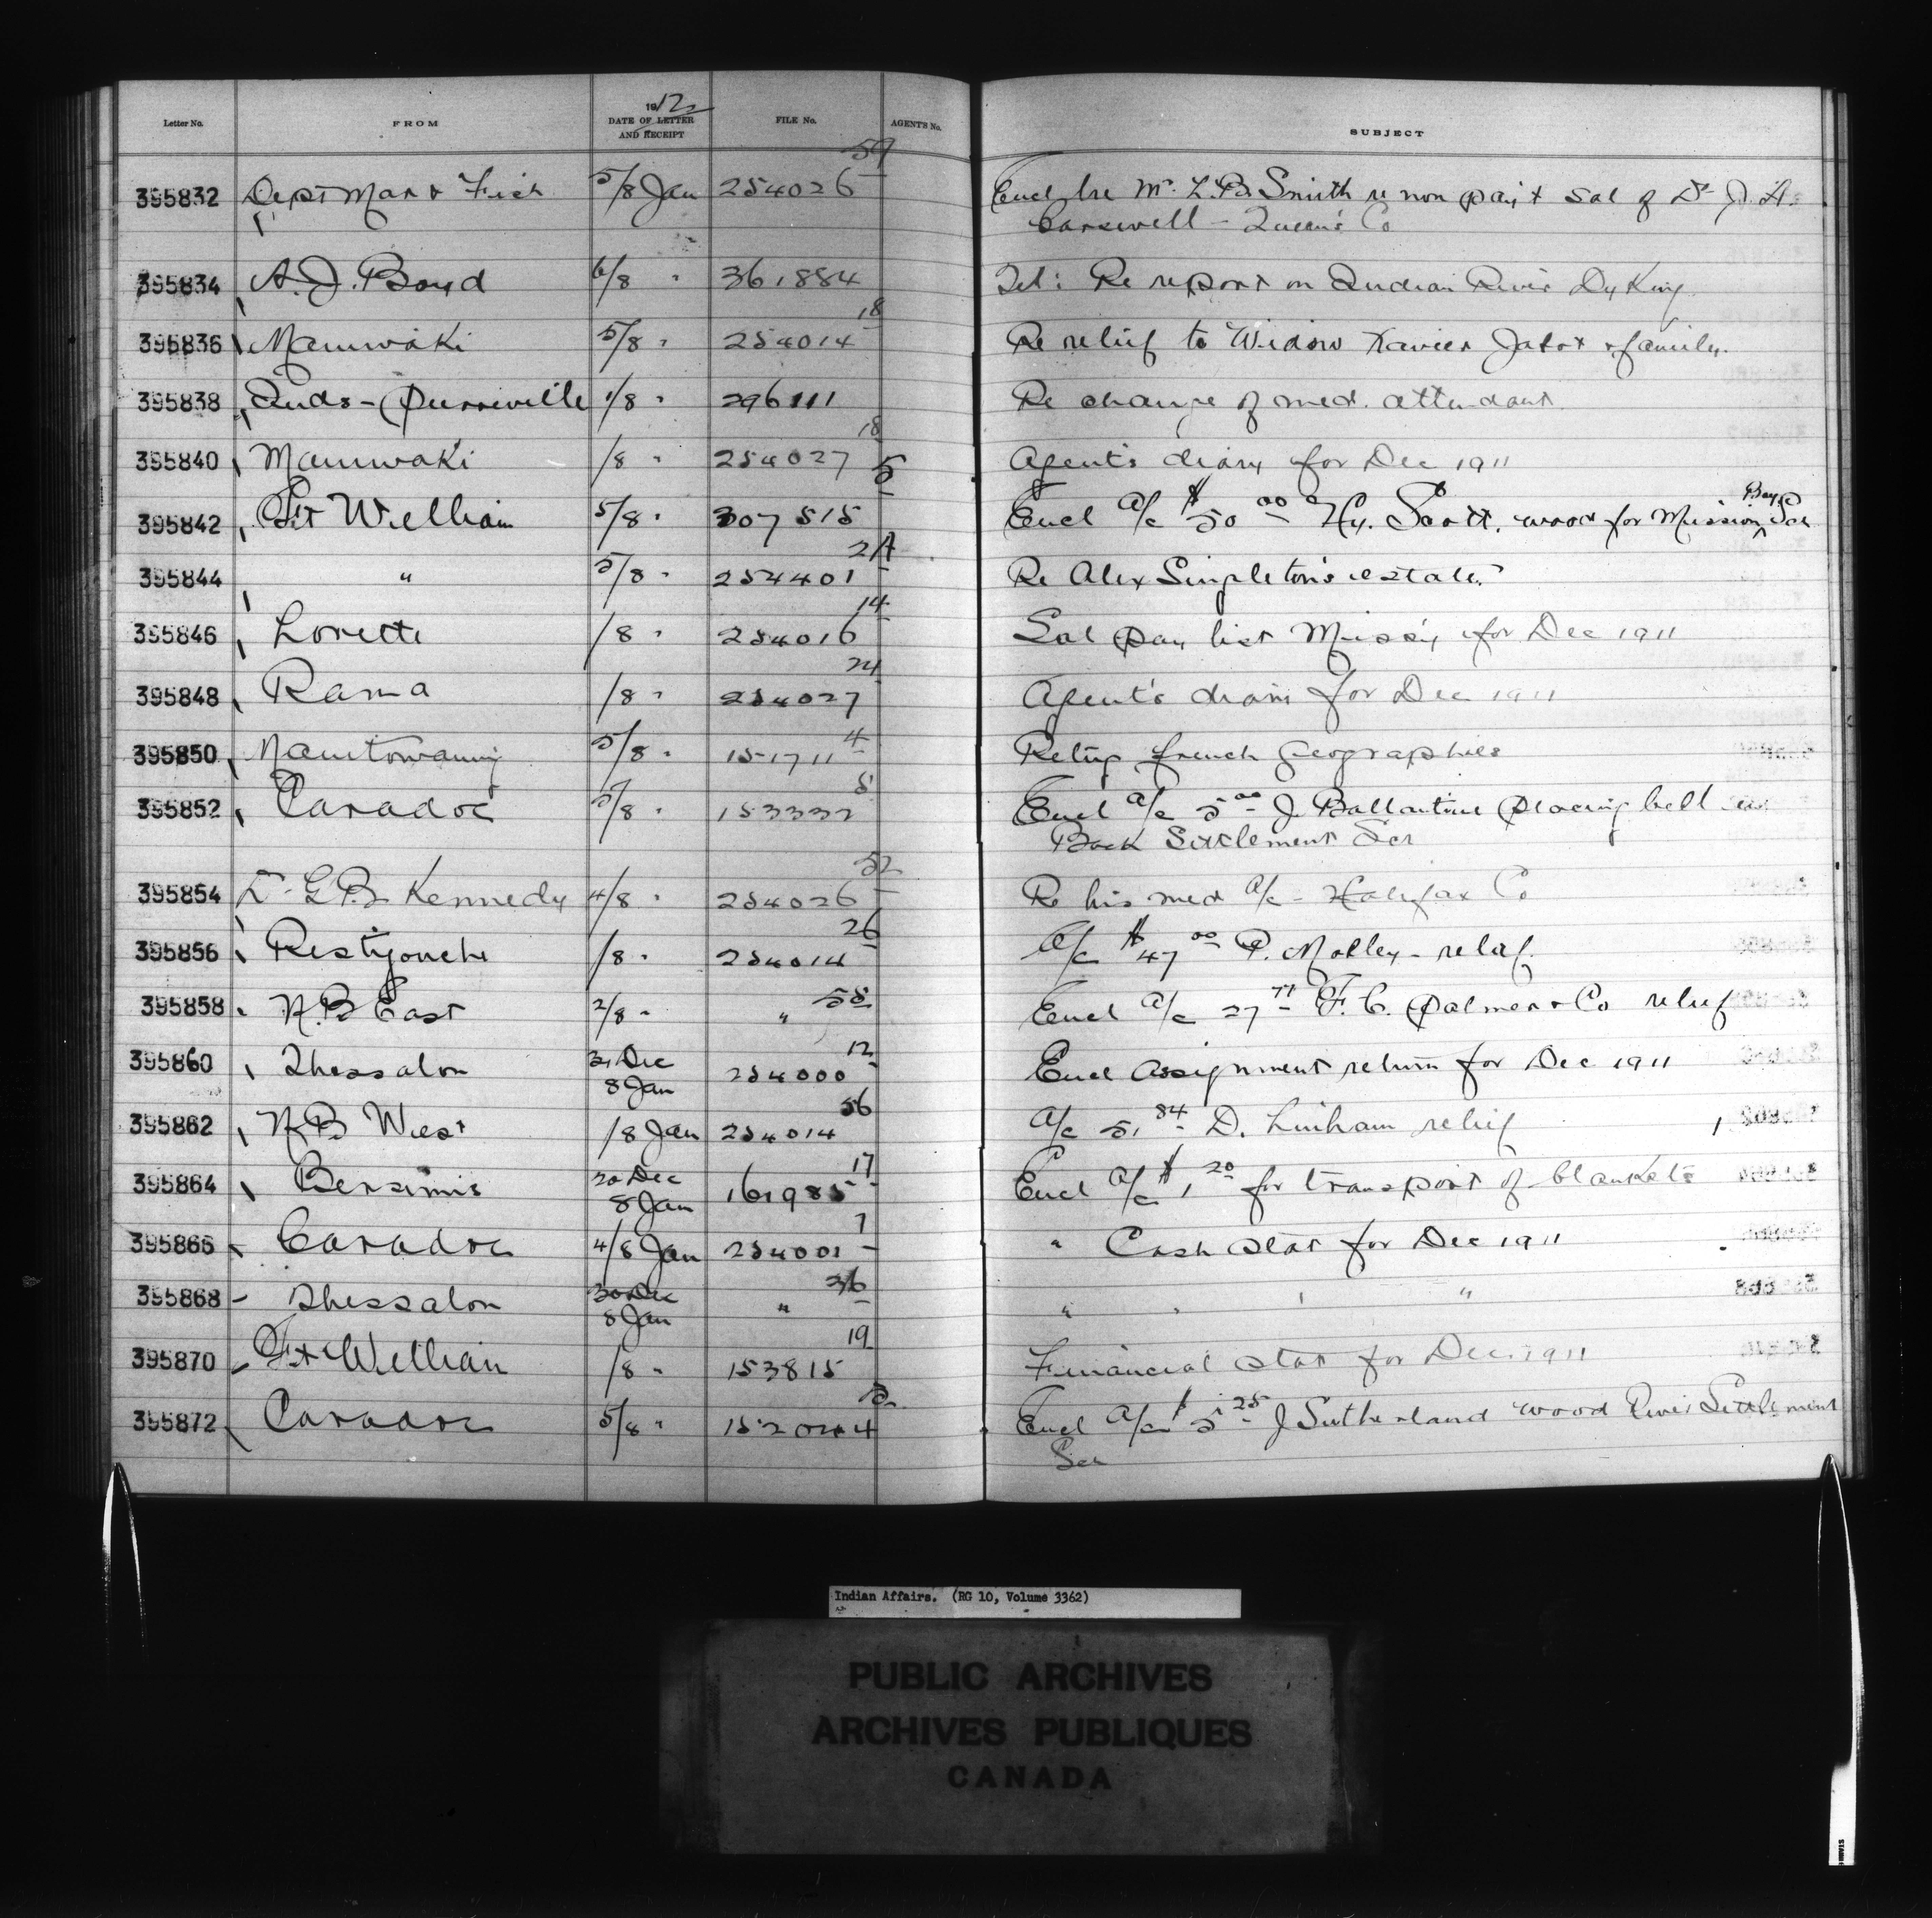 Letter No. FROM 1912 DATE OF LETTER AND RECEIPT FILE No. AGENT'S No. SUBJECT
395832 Dept Mar & Fish 5/8 Jan 254026 59 Encl lre Mr. L.B. Smith re non pay't sal of Dr J. A.
Carswell - Queen's Co
395834 A. J. Boyd 6/8 " 361884 Tel: Re report on Indian River Dyking
395836 Maniwaki 5/8 " 254014 18 Re relief to Widow Xavier & family.
395838 Inds - Pierreville 1/8 " 296111 Re change of med. attendant
395840 Maniwaki /8 " 254027 18 Agent's diary for Dec 1911
395842 Ft William 5/8 " 307515 5 Encl a/c $50 00 Hy. Scott, wood for Mission Bay Sch
395844 " 5/8 " 254401 2A Re Alex Singleton's estate.
395846 Lorette /8 " 254016 14 Sal pay list Miss'y for Dec 1911
395848 Rama /8 " 254027 24 Agent's diary for Dec 1911
395850 Manitowaning 5/8 " 151711 4 Retng french geographies
395852 Caradoc 5/8 " 153332 8 Encl a/c 5 00 J. Ballantine placing bell on
Back Settlement Sch
395854 Dr G.B. Kennedy 4/8 " 254026 32 Re his med a/c - Halifax Co
395856 Restigouche /8 " 254014 26 A/c $47 00 P. Mobley - relief.
395858 N.B East 2/8 " " 58 Encl a/c 27 77 F. C. Palmer & Co relief
395860 Thessalon 31 Dec 8 Jan 254000 12 Encl Assignment return for Dec 1911
395862 N.B West /8 Jan 254014 56 A/c 51 84 D. Linham relief
395864 Bersimis 30 Dec 8 Jan 161985 17 Encl a/c $1 20 for transport of blankets
395866 Caradoc 4/8 Jan 254001 7 " Cash stat for Dec 1911
395868 Thessalon 30 Dec 8 Jan " 36 " " " "
395870 Ft William /8 " 153815 19 Financial stat for Dec. 1911
395872 Caradoc 5/8 " 152044 Encl a/c $5 25 J Sutherland wood River Settlement
Sch
Indian Affairs. (RG 10, Volume 3362)
PUBLIC ARCHIVES
ARCHIVES PUBLIQUES
CANADA